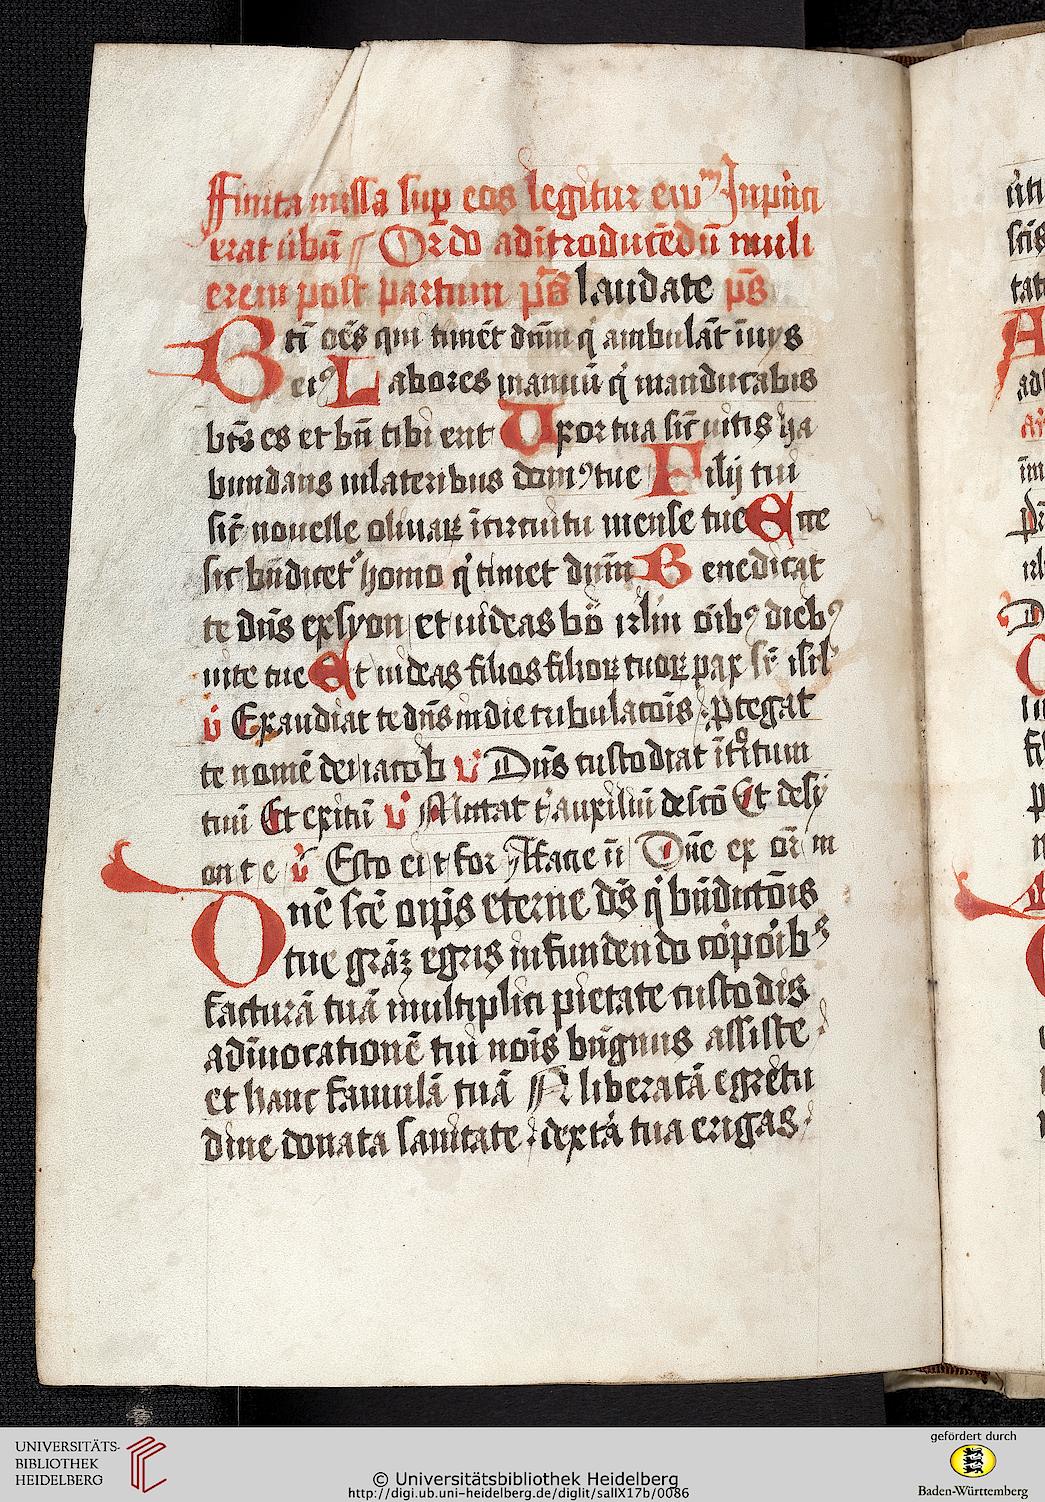 Finita missa sup eos legitur ewᵐ In pⁱnci
erat űbū Ordo adītroducēdū muli
erem post partum pˢ̄ laudate pˢ̄
Bti oēs qui timēt dnm̄ q̇ ambulāt ī uijs
eiꝰ Labores manuū q̇ manducabis
bt̄s es et bn̄ tibi erit Uxor tua sic̄ uitis ha
bundans in lateribus domꝰ tue Filij tui
sic̄ nouelle oliuaꝝ ī circuitu mense tue Ecce
sic bn̄dicet᷑ homo q̇ timet dnm̄ Benedicat
te dn̄s ex syon et uideas bō ihrlm̄ oībꝰ diebꝰ
uite tue Et uideas filios filioꝝ tuoꝝ pax sr̄ isrl̓
v̓ Exaudiat te dn̄s in die tribulacōis ꝓtegat
te nomē dei iacob v̓ Dn̄s custodiat ītroitum
tuū Et exitū v̓ Mittat t̓ auxiliū de scō Et de sy
on t e v̓ Esto ei t for A facie in̄ Dn̄e ex or̄ m
Dn̄e scē omps̄ eterne ds̄ q̇ bn̄dictōis
tue grāꝫ egris infundendo corpoībꝰ
facturā tuā multiplici pietate custodis
ad īuocationē tui noīs bn̄gnus assiste
et hanc famulā tuā N liberatā egritu
dine donata sanitate dextā tua erigas
UNIVERSITÄTS-
BIBLIOTHEK
HEIDELBERG
© Universitätsbibliothek Heidelberg
http://digi.ub.uni-heidelberg.de/diglit/salIX17b/0086
gefördert durch
Baden-Württemberg